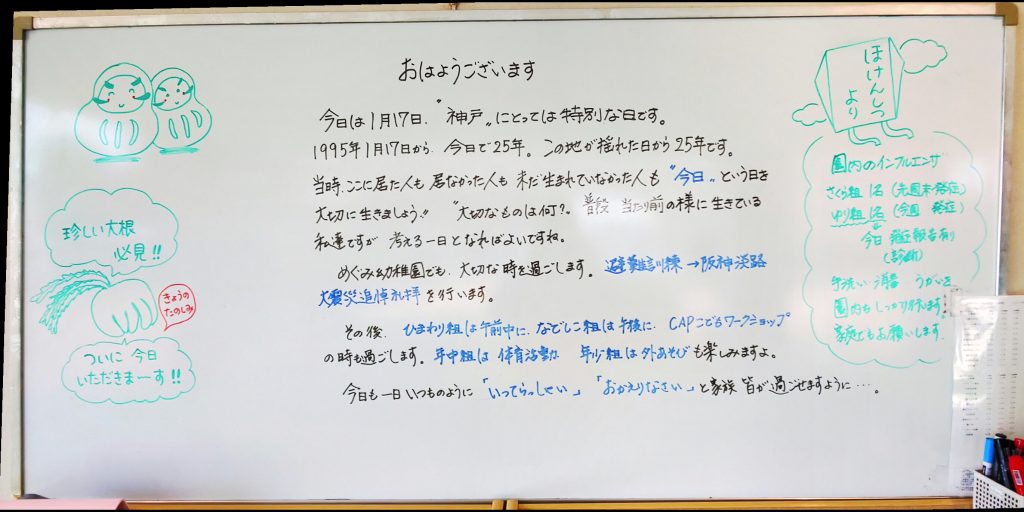 おはようございます
今日は1月17日、〝神戸〟にとっては特別な日です。
1995年1月17日から、今日で25年。この地が揺れた日から25年です。
当時、ここに居た人も 居なかった人も 未だ生まれていなかった人も 〝今日〟という日を
大切に生きましょう!! 〝大切なものは何?〟普段 当たり前の様に生きている
私達ですが 考える一日となればよいですね。
めぐみ幼稚園でも、大切な時を過ごします。避難訓練→阪神淡路
大震災追悼礼拝を行います。
その後、ひまわり組は午前中に、なでしこ組は午後に、CAPこどもワークショップ
の時も過ごします。年中組は 体育活動 年少組は外あそびも楽しみますよ。
今日も一日いつものように「いってらっしゃい」「おかえりなさい」と家族 皆が過ごせますように…。
珍しい大根
必見!!
きょうの
たのしみ
ついに 今日
いただきまーす!!
ほけんしつ
より
園内のインフルエンザ
さくら組 1名 (先週末発症)
ゆり組 1名 (今週 発症)
今日 発症報告有り
(診断)
手洗い・消毒 うがいを
園内もしっかり行います。
家庭でもお願いします。